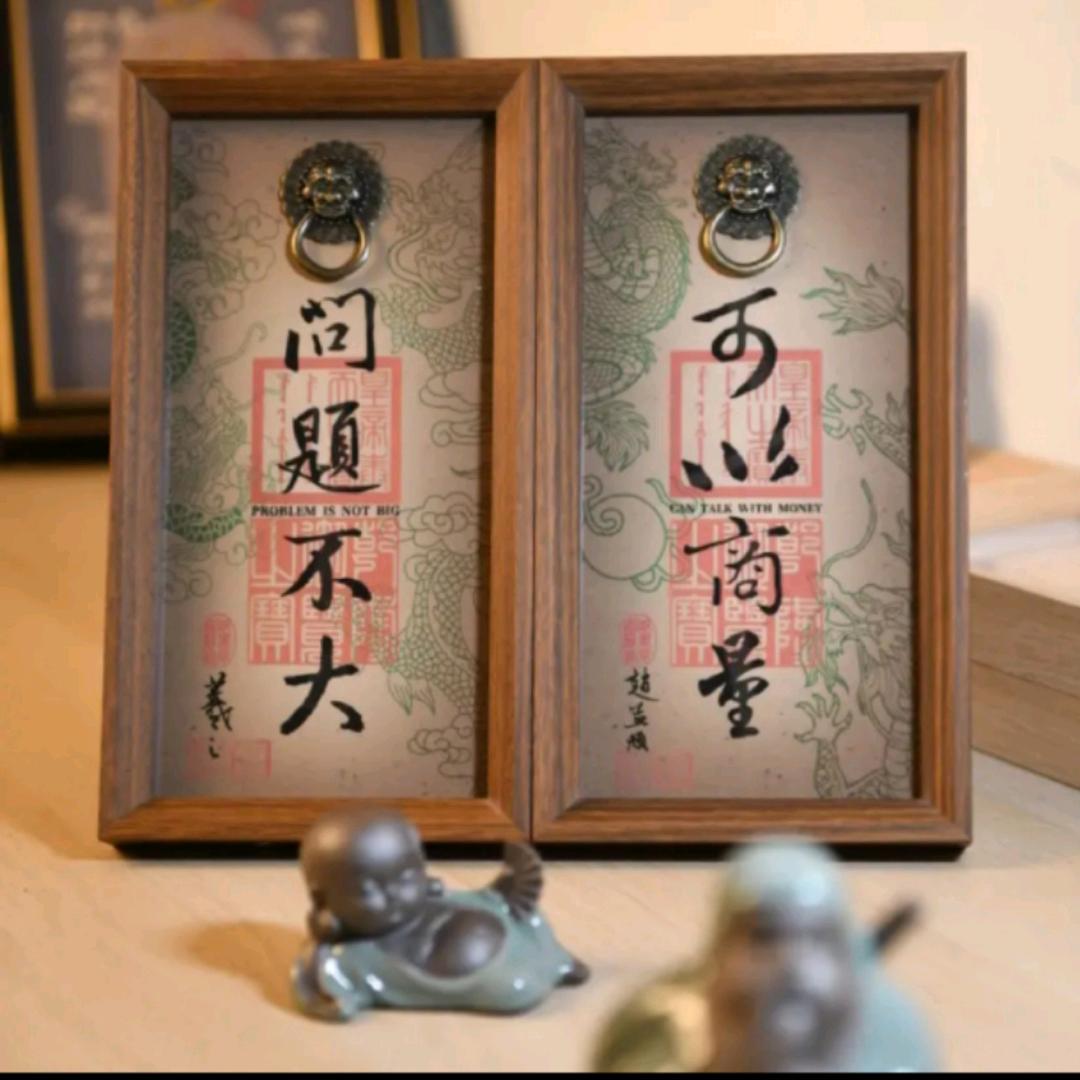 問題不大
PROBLEM IS NOT BIG
羲之
可以商量
CAN TALK WITH MONEY
趙孟頫